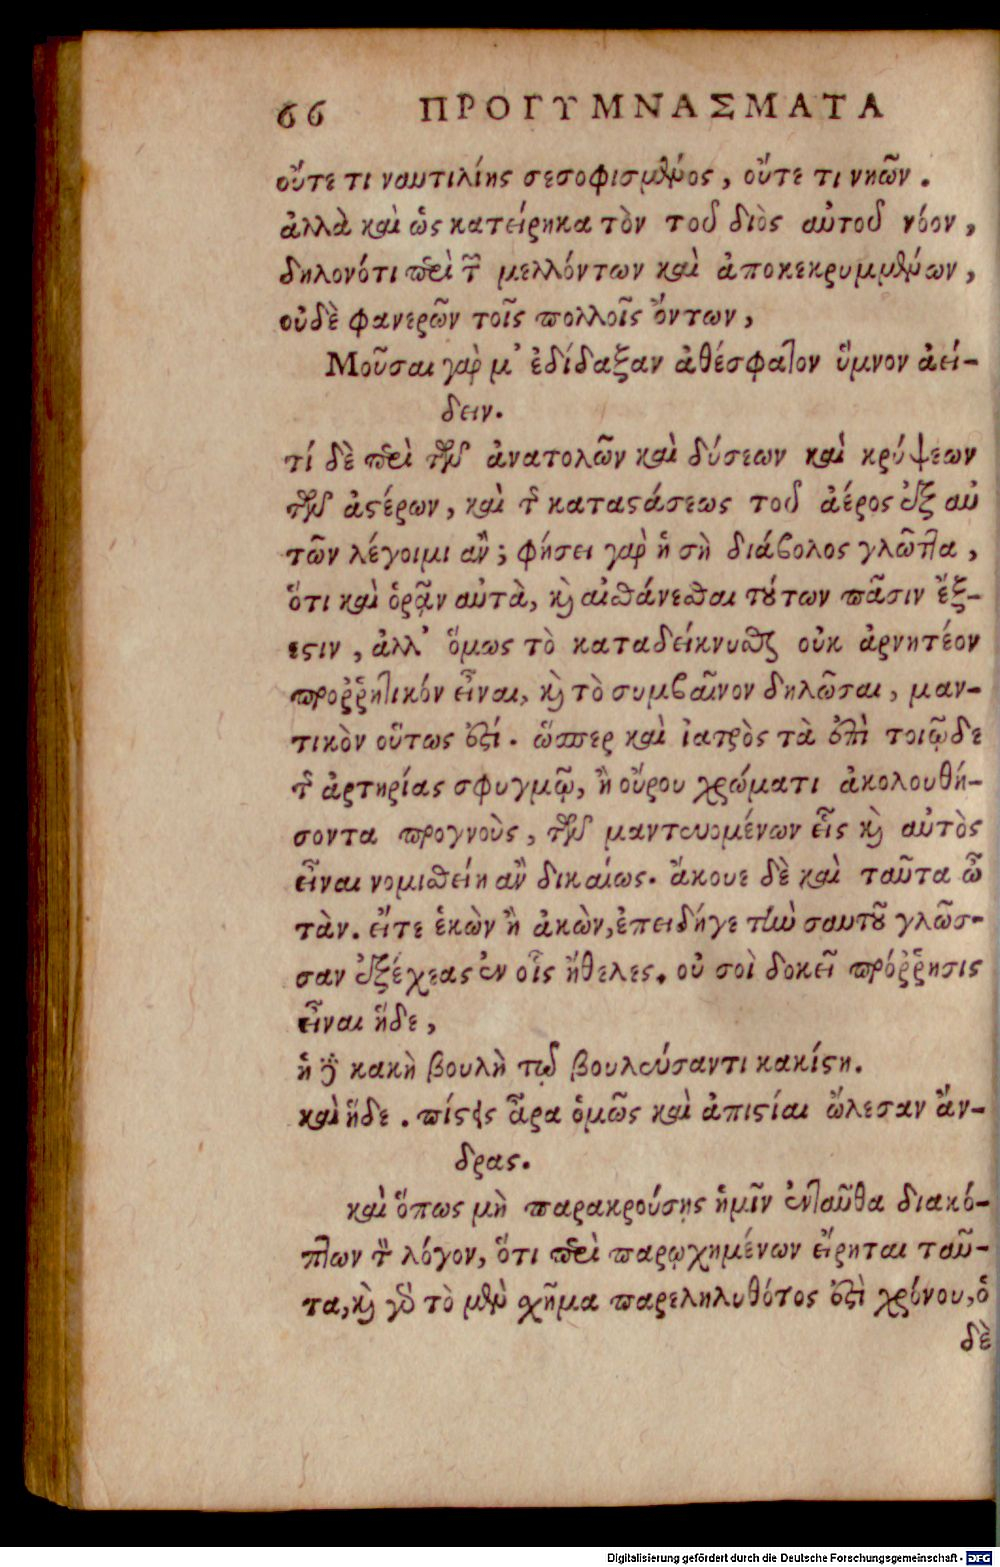 66 ΠΡΟΓΥΜΝΑΣΜΑΤΑ
οὔτε τι ναυτιλίης σεσοφισμένος, οὔτε τι νηῶν.
ἀλλὰ καὶ ὡς κατείρηκα τὸν τοῦ διὸς αὐτοῦ νόον,
δηλονότι περὶ τῶν μελλόντων καὶ ἀποκεκρυμμένων,
οὐδὲ φανερῶν τοῖς πολλοῖς ὄντων,
Μοῦσαι γὰρ μ' ἐδίδαξαν ἀθέσφατον ὕμνον ἀεί-
δειν.
τί δὲ περὶ τῶν ἀνατολῶν καὶ δύσεων καὶ κρύψεων
τῶν ἀστέρων, καὶ τῆς καταστάσεως τοῦ ἀέρος ἐξ αὐ
τῶν λέγοιμι ἂν; φήσει γὰρ ἡ σὴ διάβολος γλῶττα,
ὅτι καὶ ὁρᾷν αὐτὰ, καὶ αἰσθάνεσθαι τούτων πᾶσιν ἔξ-
εστιν, ἀλλ' ὅμως τὸ καταδείκνυσθαι οὐκ ἀρνητέον
προῤῥητικόν εἶναι, καὶ τὸ συμβαῖνον δηλῶσαι, μαν-
τικὸν οὕτως ἐστί. ὥσπερ καὶ ἰατρὸς τὰ ἐπὶ τοιῷδε
τῆς ἀρτηρίας σφυγμῷ, ἢ οὔρου χρώματι ἀκολουθή-
σοντα προγνοὺς, τῶν μαντευομένων εἷς καὶ αὐτὸς
εἶναι νομισθείη ἂν δικαίως. ἄκουε δὲ καὶ ταῦτα ὦ
τὰν. εἴτε ἑκὼν ἢ ἀκὼν, ἐπειδήγε τὴν σαυτοῦ γλῶσ-
σαν ἐξέχεας ἐν οἷς ἤθελες. οὐ σοὶ δοκεῖ πρόῤῥησις
εἶναι ἥδε,
ἡ δὲ κακὴ βουλὴ τῷ βουλεύσαντι κακίστη.
καὶ ἥδε. πίστεις ἆρα ὁμῶς καὶ ἀπιστίαι ὤλεσαν ἄν-
δρας.
καὶ ὅπως μὴ παρακρούσῃς ἡμῖν ἐνταῦθα διακό-
πτων τὸν λόγον, ὅτι περὶ παρῳχημένων εἴρηται ταῦ-
τα, καὶ γὰρ τὸ μὲν σχῆμα παρεληλυθότος ἐστὶ χρόνου, ὁ
δὲ
Digitalisierung gefördert durch die Deutsche Forschungsgemeinschaft - DFG